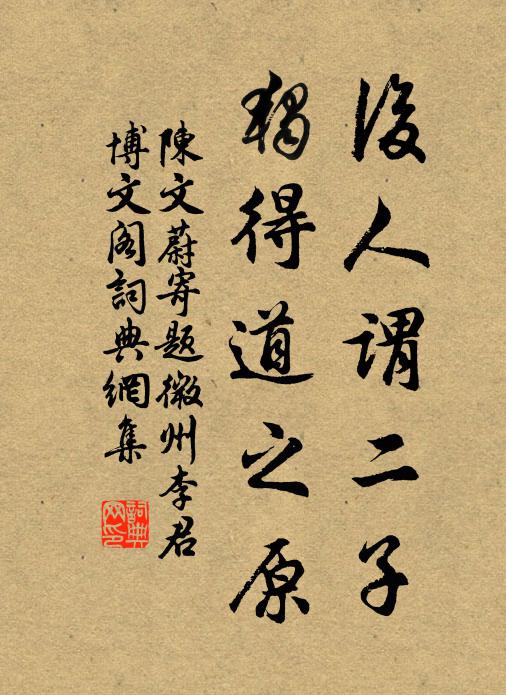 後人謂二子
獨得道之原
陳文蔚寄題徽州李君
博文阁詞典網集
詞典网印